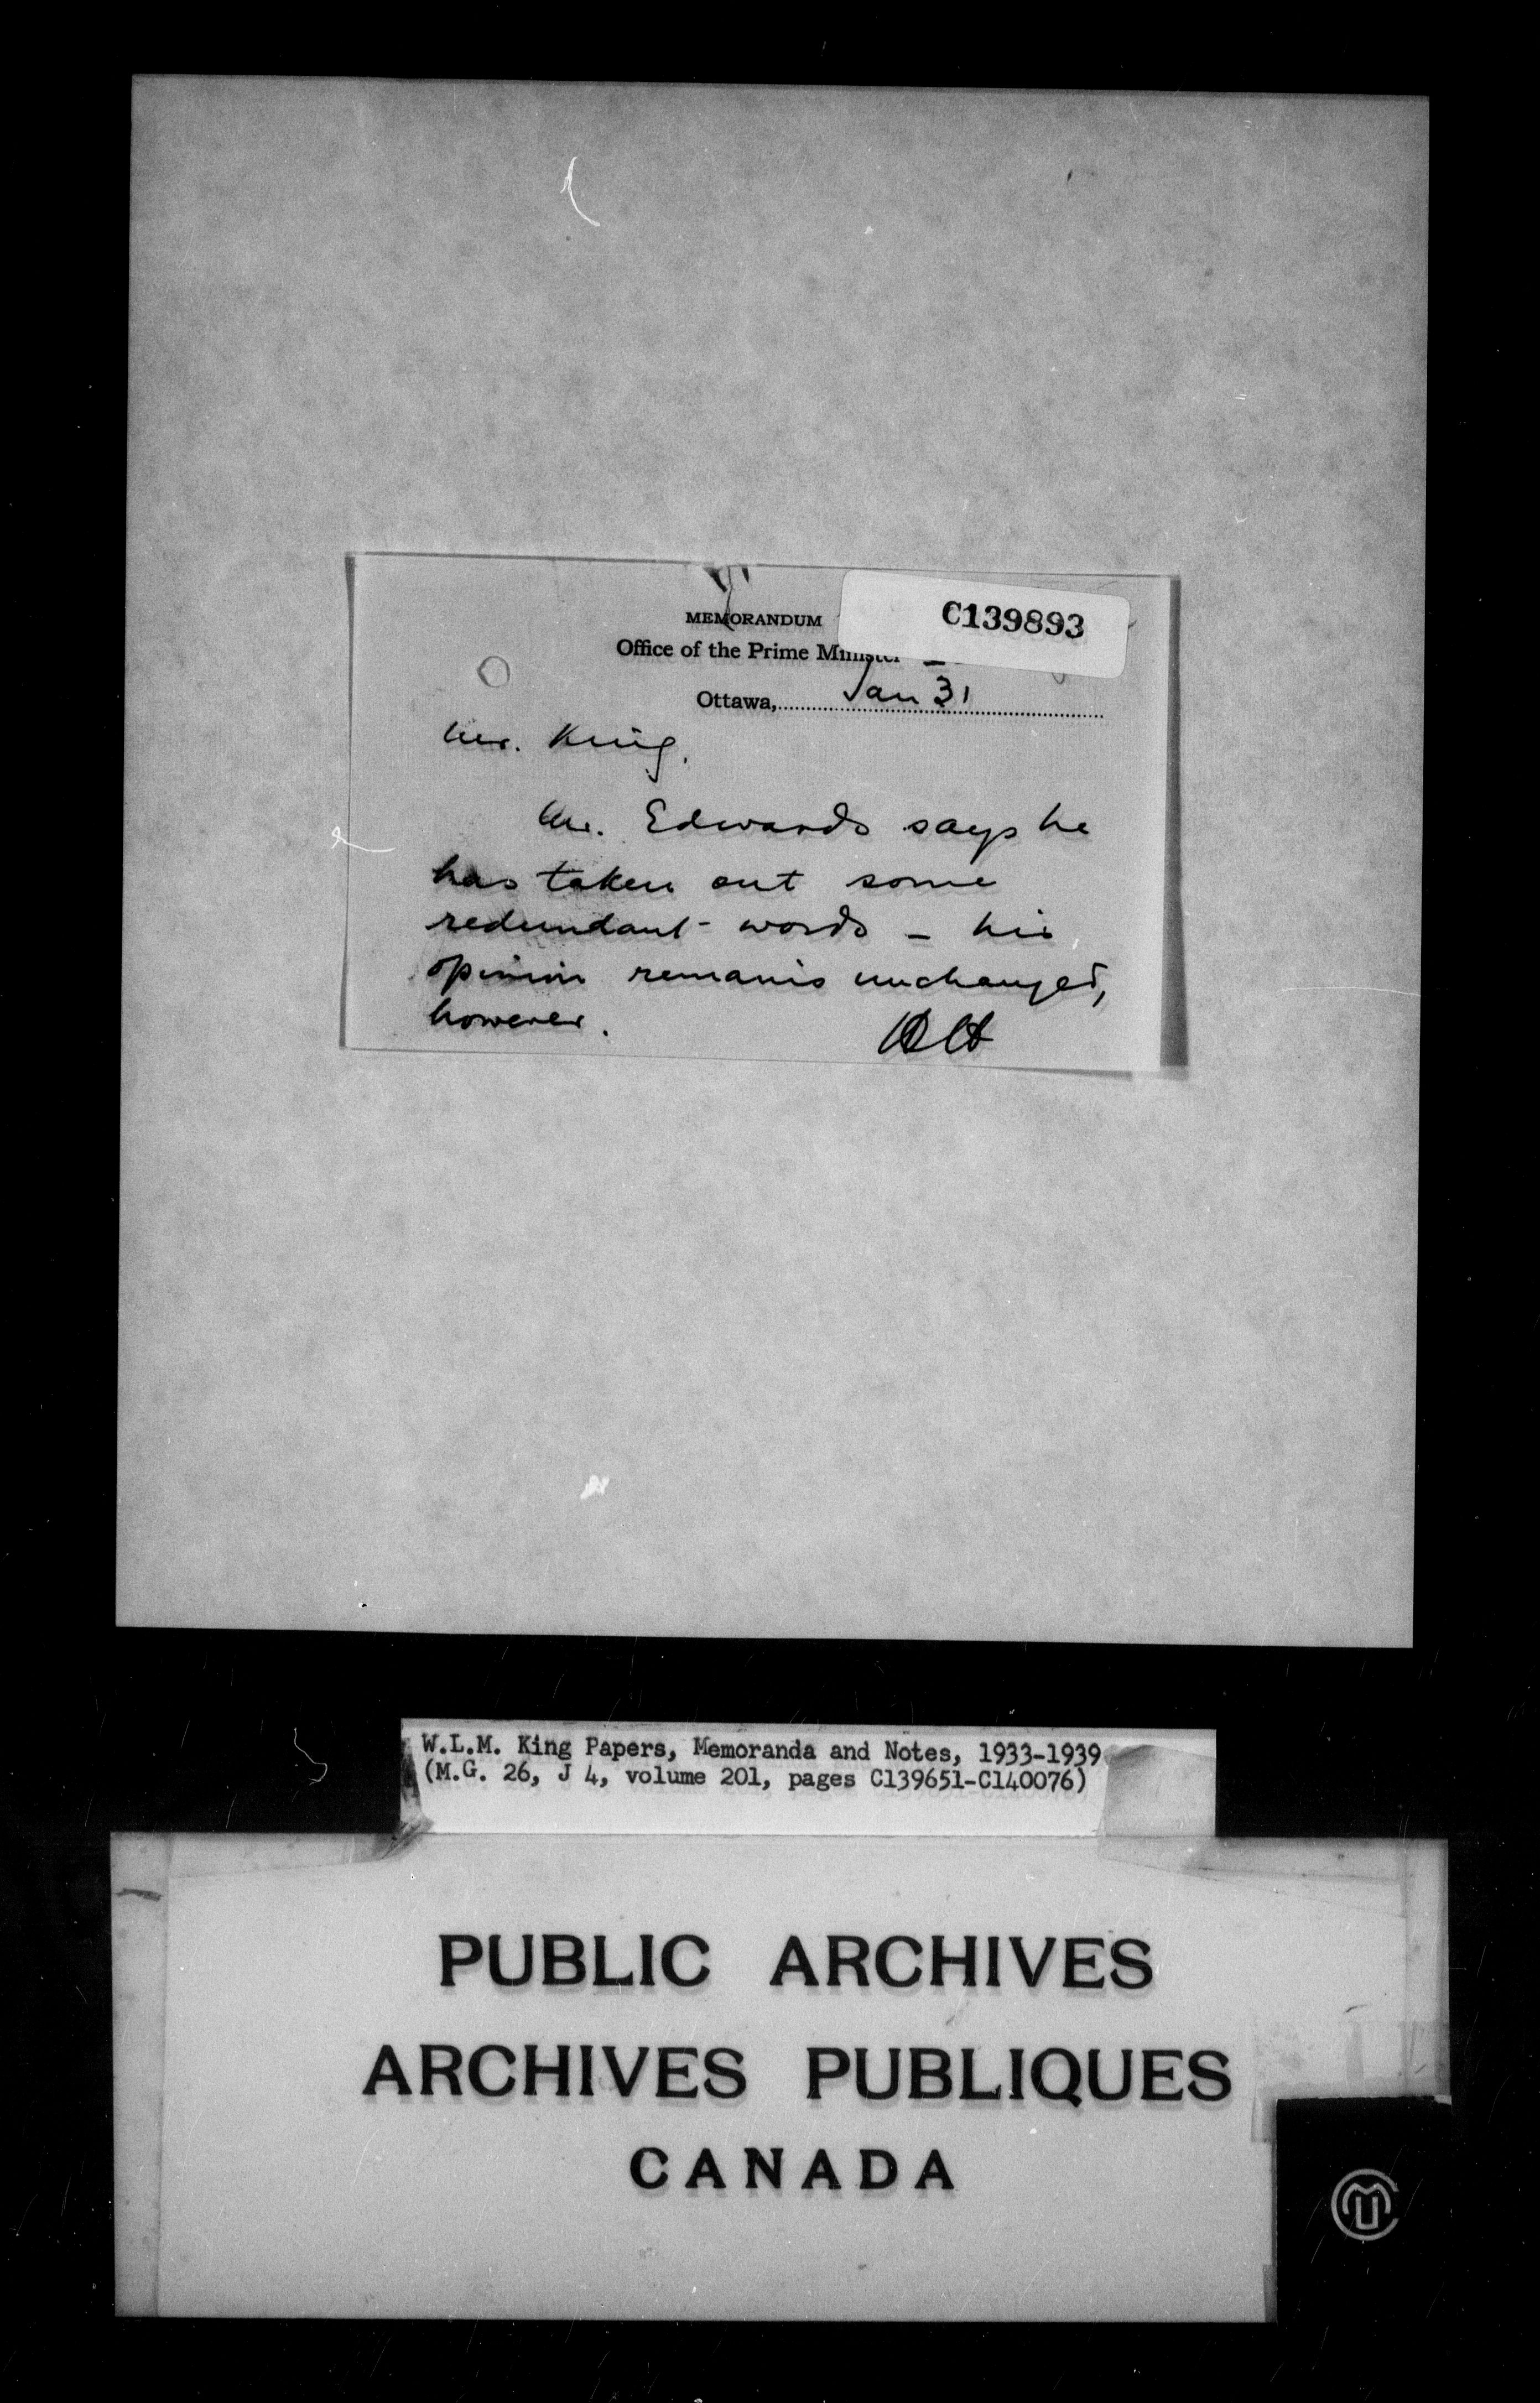 C139893
MEMORANDUM
Office of the Prime Minister
Ottawa, Jan 31
Mr. King,
Mr. Edwards says he
has taken out some
redundant words - his
opinion remains unchanged,
however.
W.L.M. King Papers, Memoranda and Notes, 1933-1939
(M.G. 26, J 4, volume 201, pages C139651-C140076)
PUBLIC ARCHIVES
ARCHIVES PUBLIQUES
CANADA